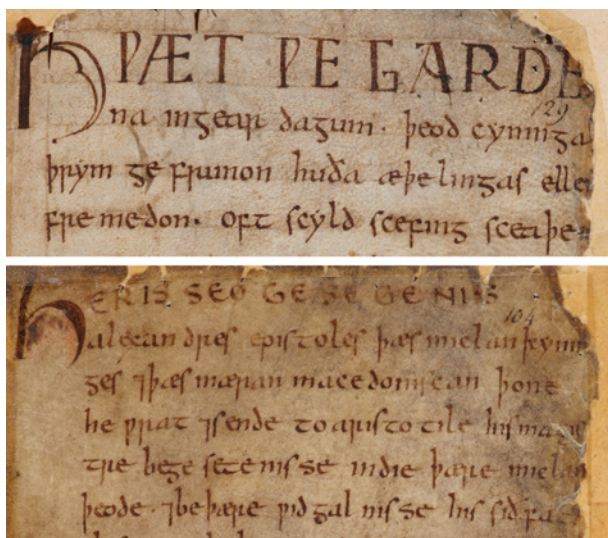 HǷÆT ǷE GARDE
129
na ingear dagum· þeod cyninga
þrym ge frunon huða æþe lingas elle
fre medon· oft scyld scefing sceaþe
HER IS SEO GE SE TENIS
104
alexan dres epistoles þæs miclan kynin
ges ⁊þæs mæran macedoniscan þone
he ƿrat ⁊sende to aristo tile his magis
tre be ge sete nisse indie þære miclan
þeode· ⁊be þære ƿid gal nisse his sið fa